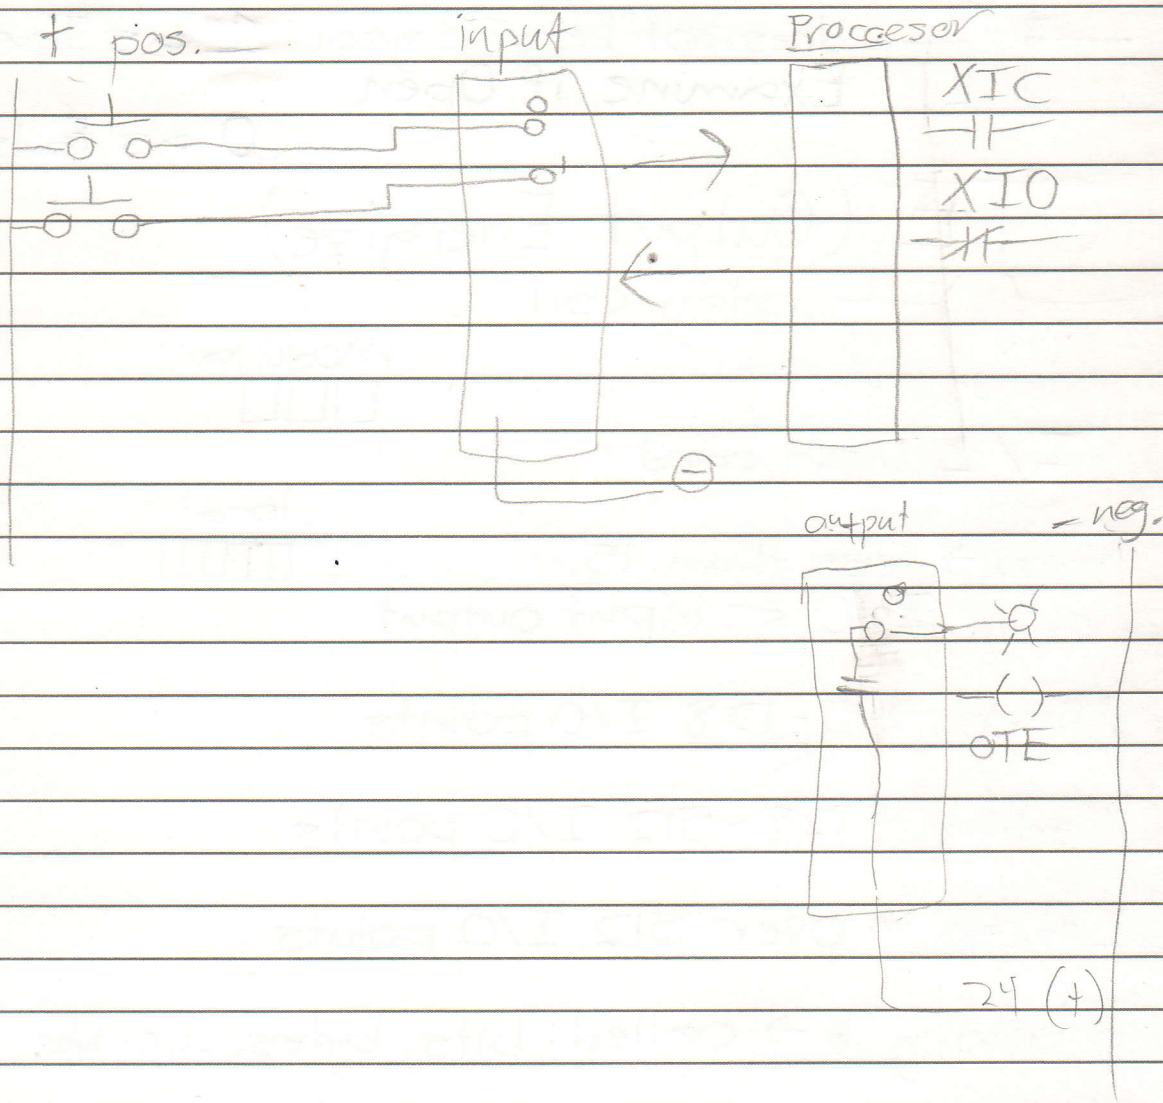 + pos.
input
Proccesor
XIC
XIO
-
output
- neg.
( )
OTE
24 (+)